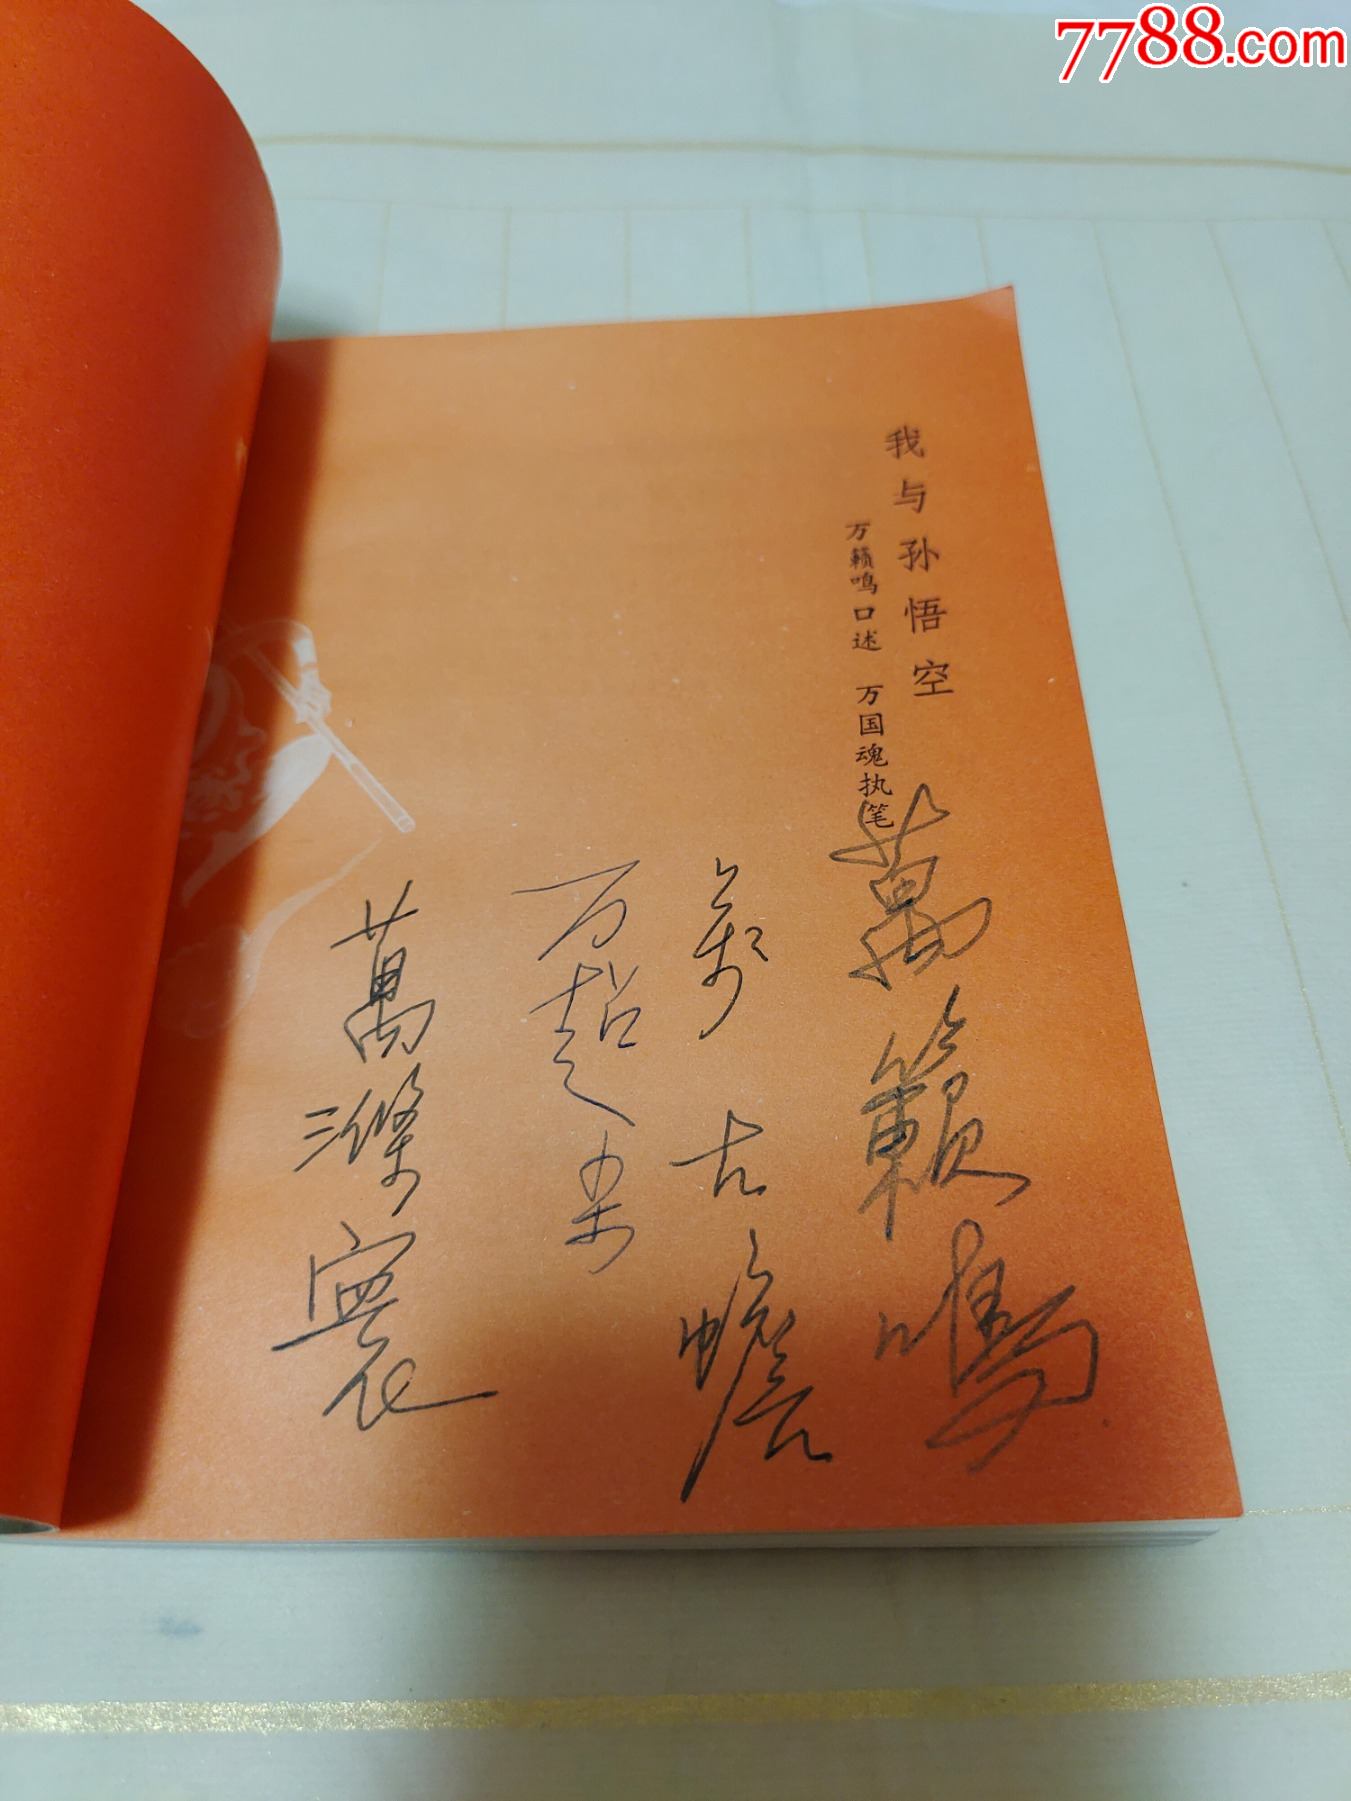 7788.com
我与孙悟空
万籁鸣口述 万国魂执笔
萬籟鳴
万古蟾
万超尘
萬滌寰